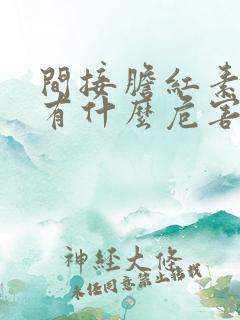 間接膽紅素
有什麼危害
神經大條
未經同意禁止搭訕